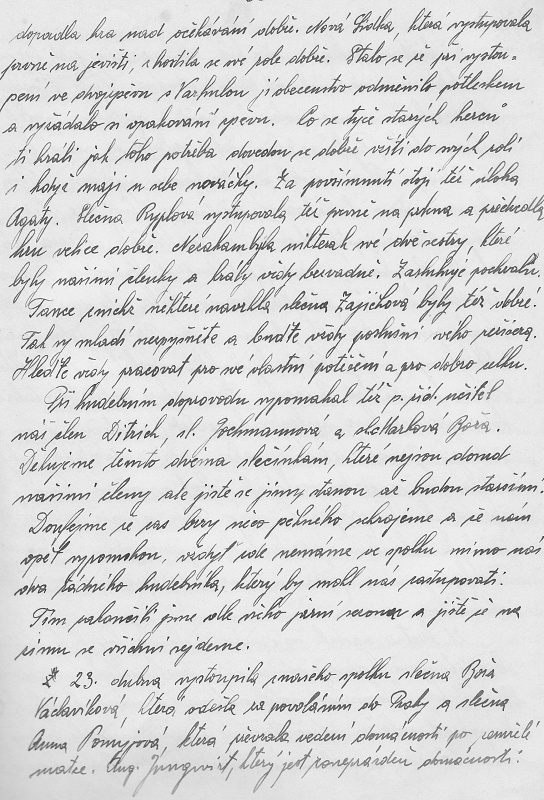 dopadla hra nad očekávání dobře. Nová Lidka, která vystupovala
prvně na jevišti, zhostila se své role dobře. Stalo se že při vystou-
pení ve dvojzpěvu s Varhulou ji obecenstvo odměnilo potleskem
a vyžádalo si opakování zpěvu. Co se týče starých herců
ti hráli jak toho potřeba dovedou se dobře vžíti do svých rolí
i když mají u sebe nováčky. Za povšimnutí stojí též úloha
Agaty. Slečna Ryplová vystupovala též prvně na prkna a předvedla
hru velice dobře. Nezahanbila nikterak své dvě sestry, které
byly našimi členky a hrály vždy bezvadně. Zasluhuje pochvalu.
Tance z nichž některé navrhla slečna Zajíčkova byly též dobré.
Tak vy mladí nezpyšněte a buďte vždy poslušni svého režiséra.
Hleďte vždy pracovat pro své vlastní potěšení a pro dobro celku.
Při hudebním doprovodu vypomáhal též p. říd. učitel
náš člen Ditrich, sl. Jochmannova a sl. Markova Boža.
Děkujeme těmto dvěma slečinkám, které nejsou dosud
našimi členy ale jistě se jimi stanou až budou staršími.
Doufejme že zas brzy něco pěkného sehrajeme a že nám
opět vypomohou, vždyť zde nemáme ve spolku mimo nás
dva žádného hudebníka, který by mohl nás zastupovati.
Tím zakončili jsme dle všeho jarní sezonu a jistě že na
zimu se všichni sejdeme.
23. dubna vystoupila z našeho spolku slečna Boža
Václavíkova, která odešla za povoláním do Prahy a slečna
Anna Pomyjová, která převzala vedení domácnosti po zemřelé
matce. Aug. Jungwirt, který jest zaneprázdněn domácností.